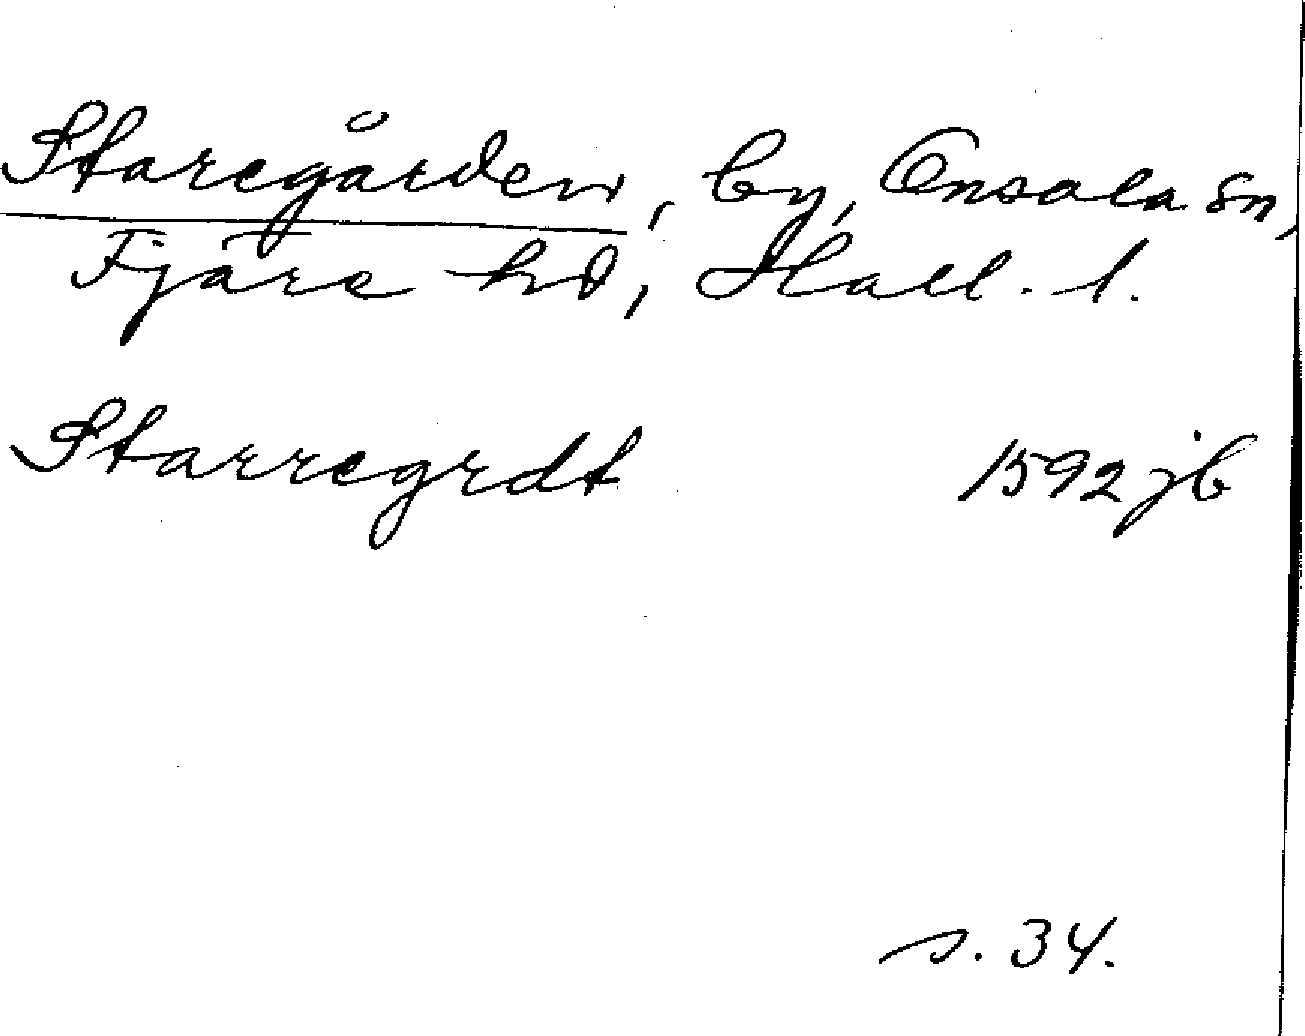 Staregården, by, Onsala sn,
Fjäre hd, Hall. l.
Starregrdt 1592 jb
s. 34.